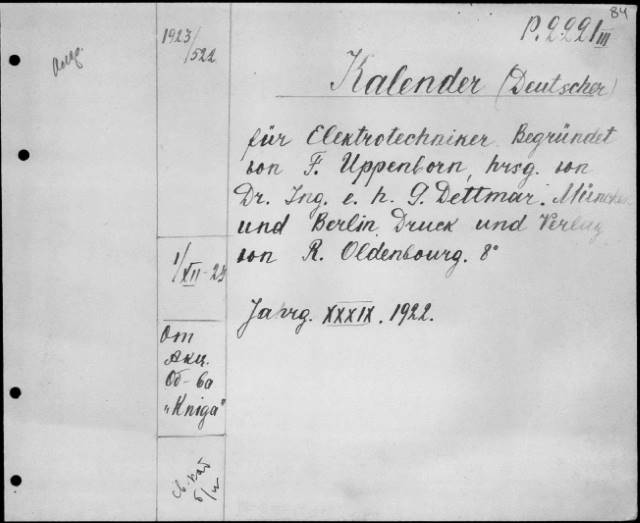 84
P. 2221 III
Kalender (Deutscher)
für Elektrotechniker. Begründet
von F. Uppenborn, hrsg. von
Dr. Ing. e. h. G. Dettmar. München
und Berlin. Druck und Verlag
von R. Oldenbourg. 8°
Jahrg. XXXIX. 1922.
1923/522
1/XII-23
От
Акц.
Об-ва
„Kniga"